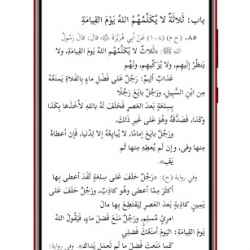 باب: ثَلَاثَةٌ لَا يُكَلِّمُهُمُ اللهُ يَوْمَ القِيَامَةِ
٨٥- (خ م) عَنْ أَبِي هُرَيْرَةَ قَالَ: قَالَ رَسُولُ
اللهِ ﷺ: «ثَلَاثٌ لَا يُكَلِّمُهُمُ اللهُ يَوْمَ القِيَامَةِ، وَلَا
يَنْظُرُ إِلَيْهِمْ وَلَا يُزَكِّيهِمْ، وَلَهُمْ
عَذَابٌ أَلِيمٌ: رَجُلٌ عَلَى فَضْلِ مَاءٍ بِالْفَلَاةِ يَمْنَعُهُ
مِنِ ابْنِ السَّبِيلِ، وَرَجُلٌ بَايَعَ رَجُلًا
بِسِلْعَةٍ بَعْدَ العَصْرِ فَحَلَفَ لَهُ بِاللهِ لَأَخَذَهَا بِكَذَا
وَكَذَا، فَصَدَّقَهُ وَهُوَ عَلَى غَيْرِ ذَلِكَ.
وَرَجُلٌ بَايَعَ إِمَامًا، لَا يُبَايِعُهُ إِلَّا لِدُنْيَا، فَإِنْ أَعْطَاهُ
مِنْهَا وَفَى، وَإِنْ لَمْ يُعْطِهِ مِنْهَا لَمْ
يَفِ».
وفي رواية (خ): «رَجُلٌ حَلَفَ عَلَى سِلْعَةٍ لَقَدْ أَعْطَى بِهَا
أَكْثَرَ مِمَّا أَعْطَى وَهُوَ كَاذِبٌ، وَرَجُلٌ حَلَفَ عَلَى
يَمِينٍ كَاذِبَةٍ بَعْدَ العَصْرِ لِيَقْتَطِعَ بِهَا مَالَ
امْرِئٍ مُسْلِمٍ، وَرَجُلٌ مَنَعَ فَضْلَ مَاءٍ، فَيَقُولُ اللهُ
يَوْمَ القِيَامَةِ: اليَوْمَ أَمْنَعُكَ فَضْلِي
كَمَا مَنَعْتَ فَضْلَ مَا لَمْ تَعْمَلْ يَدَاكَ». وفي رواية